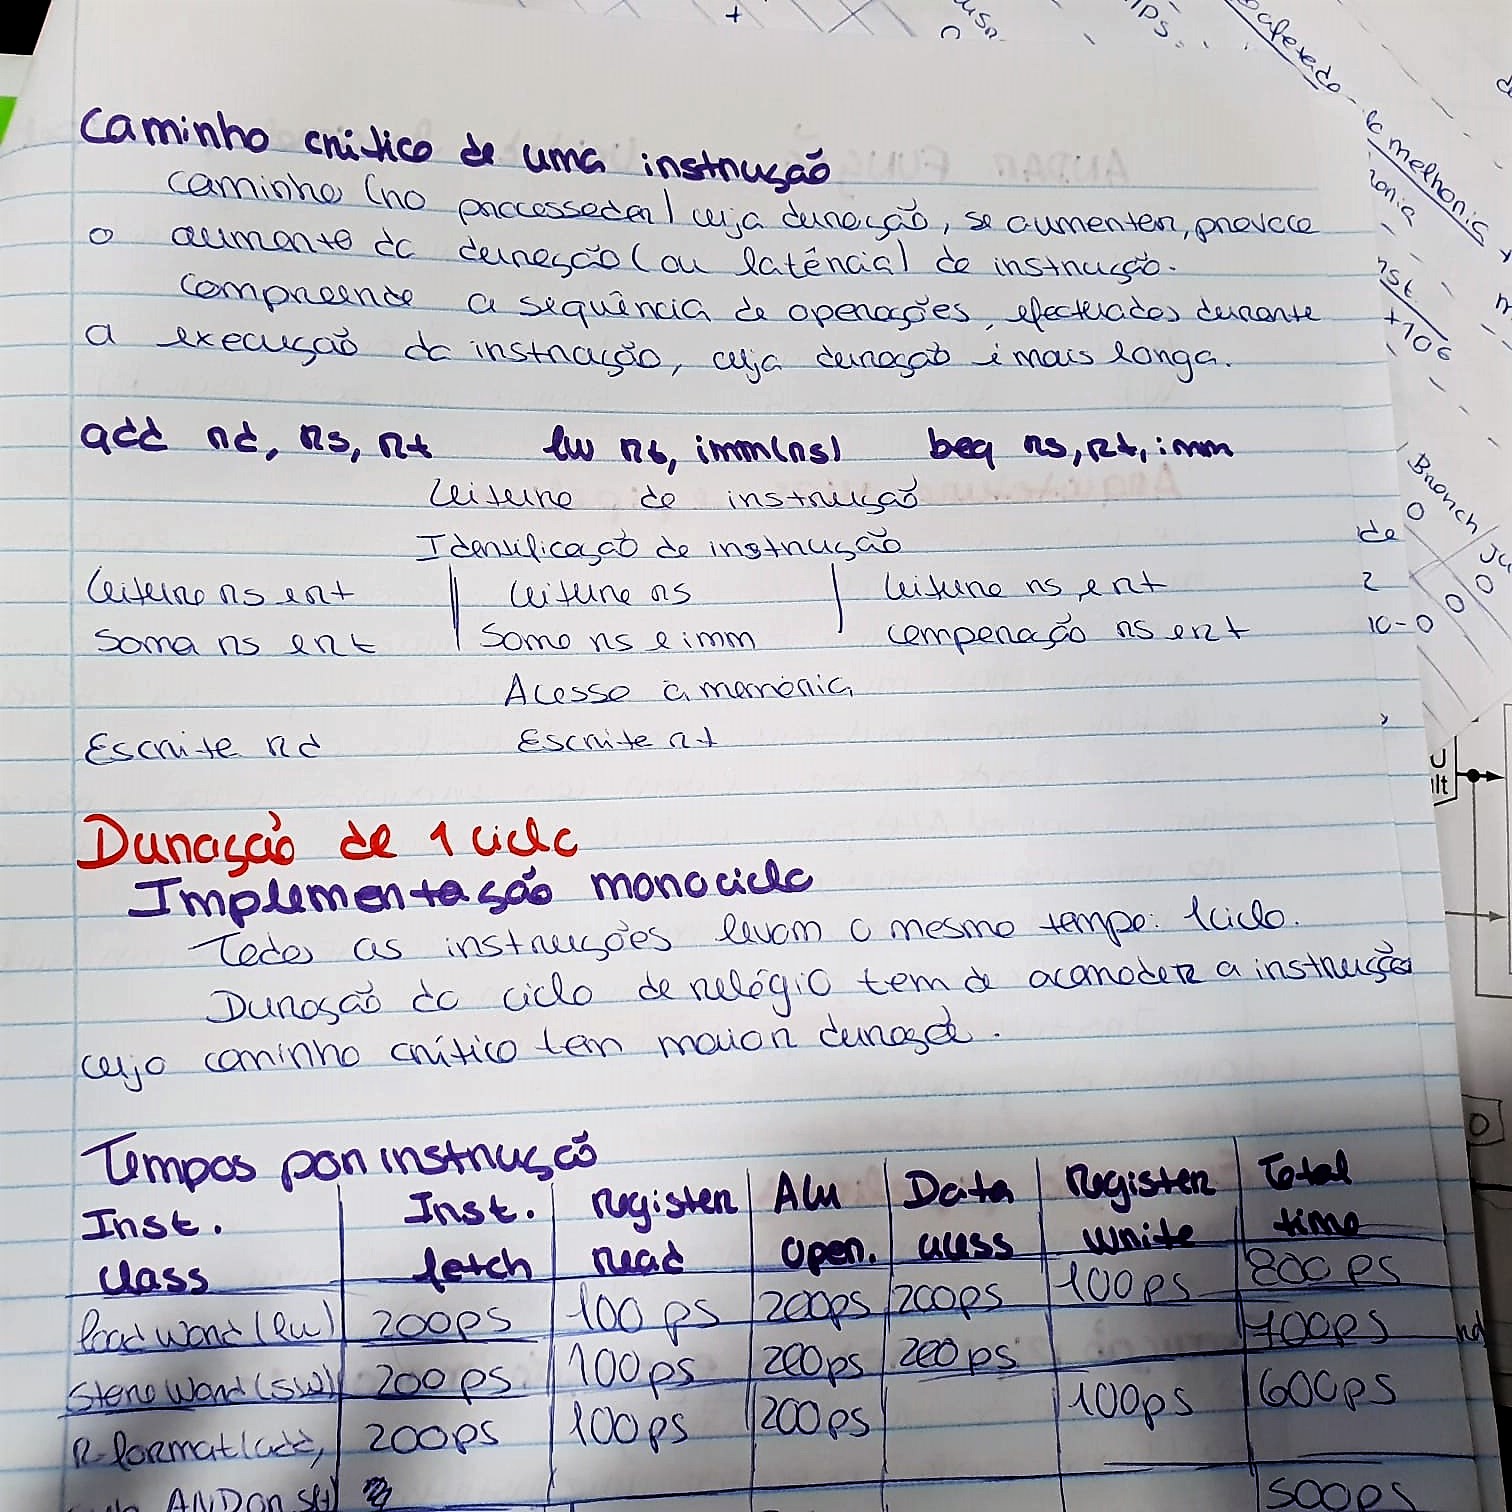 Caminho crítico de uma instrução
Caminho (no processador) cuja duração, se aumentar, provoca
o aumento da duração (ou latência) da instrução.
Compreende a sequência de operações, efectuadas durante
a execução da instrução, cuja duração é mais longa.
add rd, rs, rt lw rt, imm(rs) beq rs, rt, imm
Leitura da instrução
Identificação da instrução
Leitura rs e rt | Leitura rs | Leitura rs, e rt
Soma rs e rt | Soma rs e imm | Comparação rs e rt
Acesso à memória
Escrita rd Escrita rt
Duração de 1 ciclo
Implementação monociclo
Todas as instruções levam o mesmo tempo: 1 ciclo.
Duração do ciclo de relógio tem de acomodar a instrução
cujo caminho crítico tem maior duração.
Tempos por instrução
Inst. class | Inst. fetch | Register read | Alu oper. | Data acess | Register write | Total time
load word (lw) | 200ps | 100 ps | 200ps | 200ps | 100ps | 800 ps
Store word (sw) | 200ps | 100ps | 200ps | 200ps | | 700ps
R-format (add, | 200ps | 100ps | 200ps | | 100ps | 600ps
AND, or, slt) | | | | | | 500ps
melhoria
Branch
0
0
0
de
2
10-0